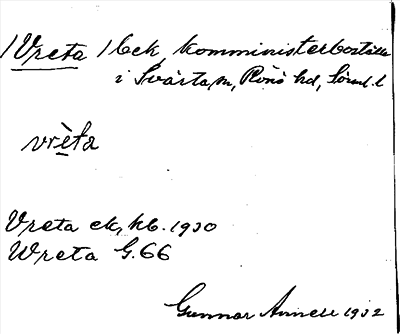 /Vreta/ bek komministerboställe
i Svärta sn, Rönö hd, Sörml. l
vrèta
Vreta ek, kb. 1930
Wreta G.66
Gunnar 1932